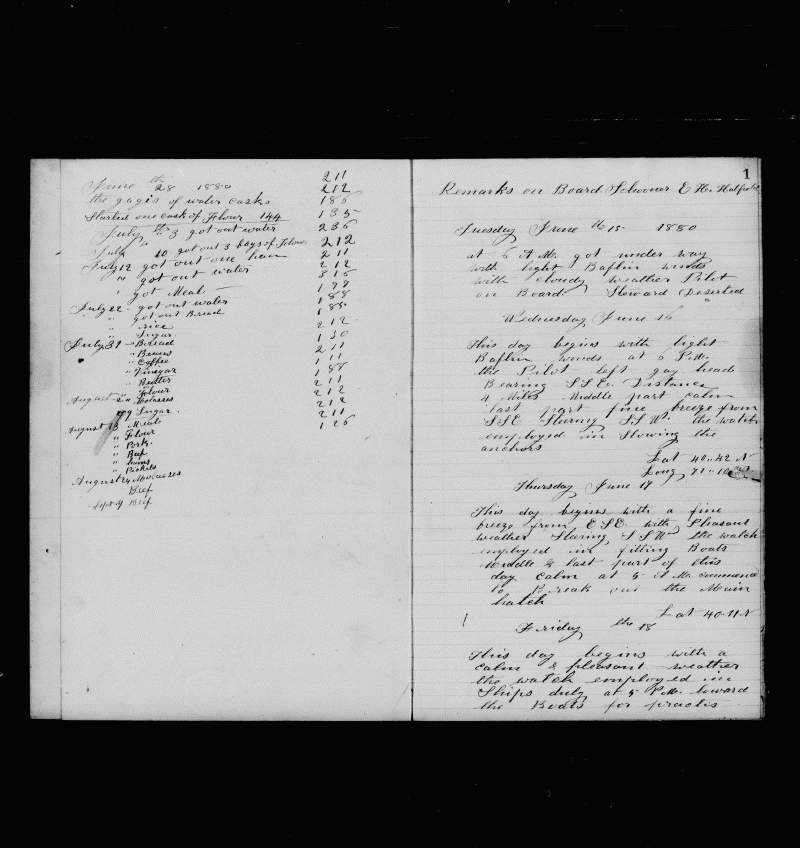 June 28th 1880
the gagis of water casks
Started one cask of Flour 144
July th 3 got out water
July " 10 got out 3 bags of Flour
July 12 got out one ham
" got out water
" got Meal
July 22 got out water
" got out Bread
" rice
" Sugar
July 31 " Bread
" Beans
" Coffee
" Vinegar
" Butter
" Flour
August 2 " Molasses
" Sugar
August Meal
" Flour
" Pork
" Beef
" hams
" Pickels
August 24 Molasses
Beef
Sept 9 Beef
211
212
186
135
236
212
211
212
315
188
212
130
211
188
211
212
212
211
126
1
Remarks on Board Schooner E. H. Hatfield
Tuesday June th 15 1880
at 6 A M. got under way
with light Baflin winds
with cloudy weather Pilot
on Board Steward Deserted
Wednesday June 16
This day begins with light
Baflin winds at 6 P.M.
the Pilot left gay head
Bearing S S E. Distance
4 Miles Middle part calm
last part fine breeze from
SSE Stering S S W. the watch
employed in Stowing the
anchors
Lat 40 .. 42 N
Long 71 .. 10
Thursday June 17
This day begins with a fine
breeze from E S E with Pleasant
weather Stering S S W the watch
employed in fitting Boats
Middle & last part of this
day calm at 5 A M. commenced
to Break out the Main
hatch
Lat 40-11 N
Friday the 18
This day begins with a
calm & pleasant weather
the watch employed in
Ships duty at 5 P.M. loward
the Boats for practis